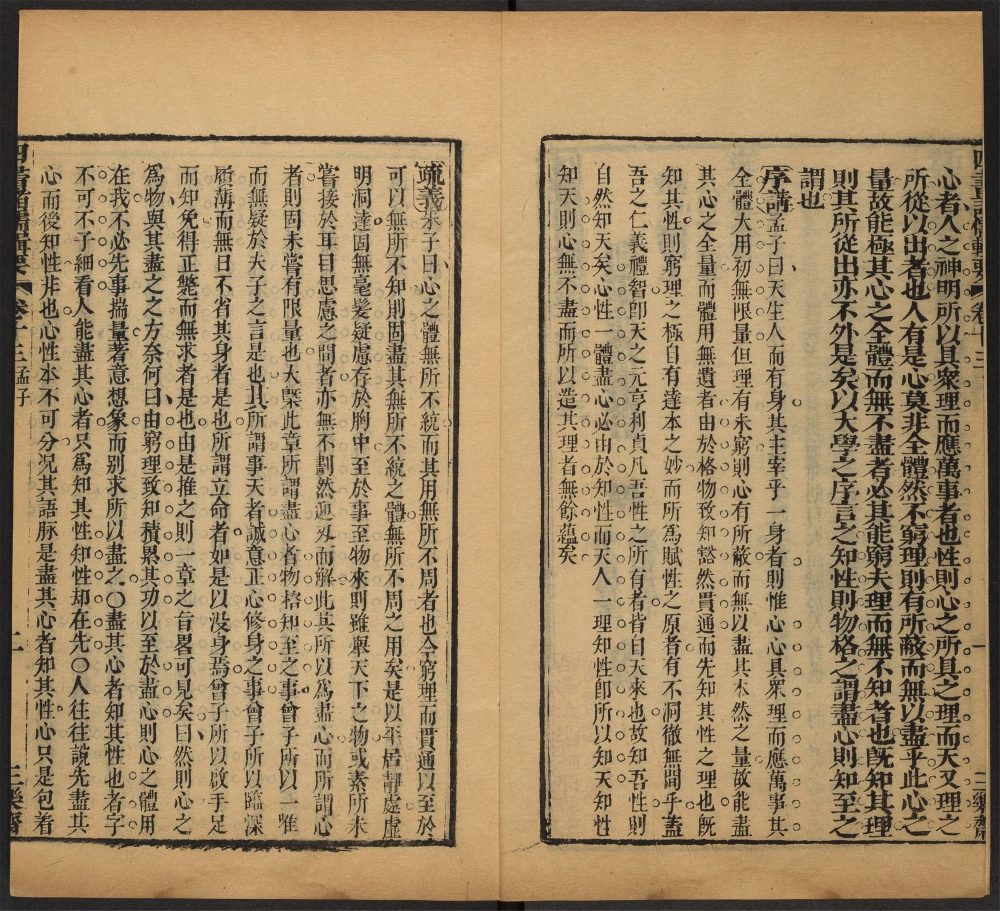 四書諸儒輯要 卷十三
一
三樂齋
心者人之神明所以具衆理而應萬事者也性則心之所具之理而天又理之
所從以出者也人有是心莫非全體然不窮理則有所蔽而無以盡乎此心之
量故能極其心之全體而無不盡者必其能窮夫理而無不知者也旣知其理
則其所從出亦不外是矣以大學之序言之知性則物格之謂盡心則知至之
謂也
序講孟子曰天生人而有身其主宰乎一身者則惟心心具衆理而應萬事其
全體大用初無限量但理有未窮則心有所蔽而無以盡其本然之量故能盡
其心之全量而體用無遺者由於格物致知豁然貫通而先知其性之理也旣
知其性則窮理之極自有達本之妙而所爲賦性之原者有不洞徹無間乎蓋
吾之仁義禮智卽天之元亨利貞凡吾性之所有者皆曰天來也故知吾性則
自然知天矣心性一體盡心必由於知性而天人一理知性卽所以知天知性
知天則心無不盡而所以造其理者無餘蘊矣
疏義朱子曰心之體無所不統而其用無所不周者也今窮理而貫通以至於
可以無所不知則固盡其無所不統之體無所不周之用矣是以平居靜處虛
明洞達固無毫髮疑慮存於胸中至於事至物來則雖舉天下之物或素所未
嘗接於耳目思慮之間者亦無不劃然迎刃而解此其所以爲盡心而所謂心
者則固未嘗有限量也大槩此章所謂盡心者物格知至之事曾子所以一唯
而無疑於夫子之言是也其所謂事天者誠意正心修身之事曾子所以臨深
履薄而無日不省其身者是也所謂立命者如是以沒身焉曾子所以啟手足
而知免得正斃而無求者是也由是推之則一章之旨畧可見矣曰然則心之
爲物與其盡之之方奈何曰由窮理致知積累其功以至於盡心則心之體用
在我不必先事揣量著意想象而別求所以盡之○盡其心者知其性也者字
不可不子細看人能盡其心者只爲知其性知性却在先○人往往說先盡其
心而後知性非也心性本不可分况其語脉是盡其心者知其性心只是包着
四書諸儒輯要 卷十三 孟子
二
三樂齋